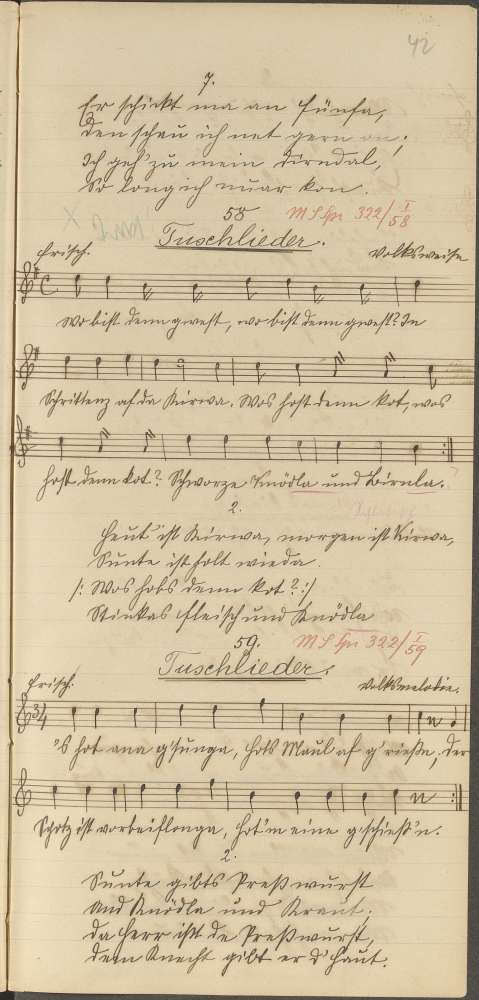 42
7.
Er schickt ma an fünfa,
Den schau ich net gern on;
Ich geh' zu mein dirndal,
So long ich nuar kon.
58
MS Spr 322/I 58
Tuschlieder.
Frisch.
Volksweise
Wo bist denn gwest, wo bist denn gwest? In
Schrittenz af da Kirwa. Wos host denn kot, wos
host denn kot? Schworze Knödla und Birnla.
2.
Heut' ist Kirwa, morgen ist Kirwa,
Sunte ist holt wieda.
/: Wos hobs denn kot? :/
Stinkas Fleisch und Knödla
59.
MS Spr 322/I 59
Tuschlieder.
Frisch.
Volksmelodie.
's hot ana g'sunga, hots Maul af g'rießn, der
Schotz ist vorbeiflonga, hot'm eine g'schieß'n.
2.
Sunte gibts Preßwurst
And Knödla und Kraut;
da Herr ißt de Preßwurst,
dem Knecht gibt er d'Haut.